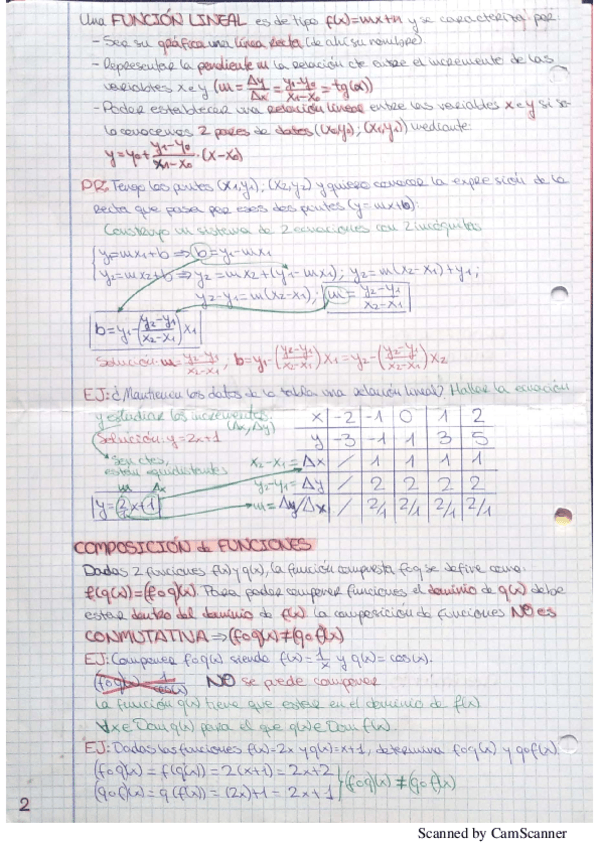 Una FUNCIÓN LINEAL es de tipo f(x)=mx+n y se caracteriza por:
- Ser su gráfica una línea recta (de ahí su nombre).
- Representar la pendiente m la relación cte entre el incremento de las
variables x e y (m = Δy/Δx = (y₁-y₀)/(x₁-x₀) = tg(α))
- Poder establecer una relación lineal entre las variables x e y si se
conocemos 2 pares de datos (x₀y₀); (x₁,y₁) mediante:
y = y₀ + (y₁-y₀)/(x₁-x₀) · (x-x₀)
Tengo los puntos (x₁,y₁); (x₂,y₂) y quiero conocer la expresión de la
recta que pasa por esos dos puntos (y=mx+b):
Construyo un sistema de 2 ecuaciones con 2 incógnitas
y₁=mx₁+b ⇒ b=y₁-mx₁
y₂=mx₂+b ⇒ y₂=mx₂+(y₁-mx₁); y₂=m(x₂-x₁)+y₁;
y₂-y₁=m(x₂-x₁); m = (y₂-y₁)/(x₂-x₁)
b=y₁-((y₂-y₁)/(x₂-x₁))x₁
Solución: m=(y₂-y₁)/(x₂-x₁), b=y₁-((y₂-y₁)/(x₂-x₁))x₁=y₂-((y₂-y₁)/(x₂-x₁))x₂
EJ: ¿Mantienen los datos de la tabla una relación lineal? Hallar la ecuación
y estudiar los incrementos. (Δx,Δy)
x -2 -1 0 1 2
Solución: y=2x+1
y -3 -1 1 3 5
Son ctes, están equidistantes
x₂-x₁=Δx / 1 1 1 1
y₂-y₁=Δy / 2 2 2 2
m Δx
y=2x+1
m=Δy/Δx / 2/1 2/1 2/1 2/1
COMPOSICIÓN de FUNCIONES
Dadas 2 funciones f(x) y g(x), la función compuesta fog se define como:
f(g(x))=(fog)(x). Para poder componer funciones el dominio de g(x) debe
estar dentro del dominio de f(x). La composición de funciones NO es
CONMUTATIVA ⇒ (fog)(x)≠(gof)(x)
EJ: Componer fog(x) siendo f(x)=1/x y g(x)=cos(x).
(fog)(x)=1/cos(x) NO se puede componer
la función g(x) tiene que estar en el dominio de f(x)
∀x∈Dom g(x) para el que g(x)∈Dom f(x).
EJ: Dadas las funciones f(x)=2x y g(x)=x+1, determina fog(x) y gof(x).
(fog)(x) = f(g(x)) = 2(x+1) = 2x+2
(fog)(x) ≠ (gof)(x)
(gof)(x) = g(f(x)) = (2x)+1 = 2x+1
2
Scanned by CamScanner